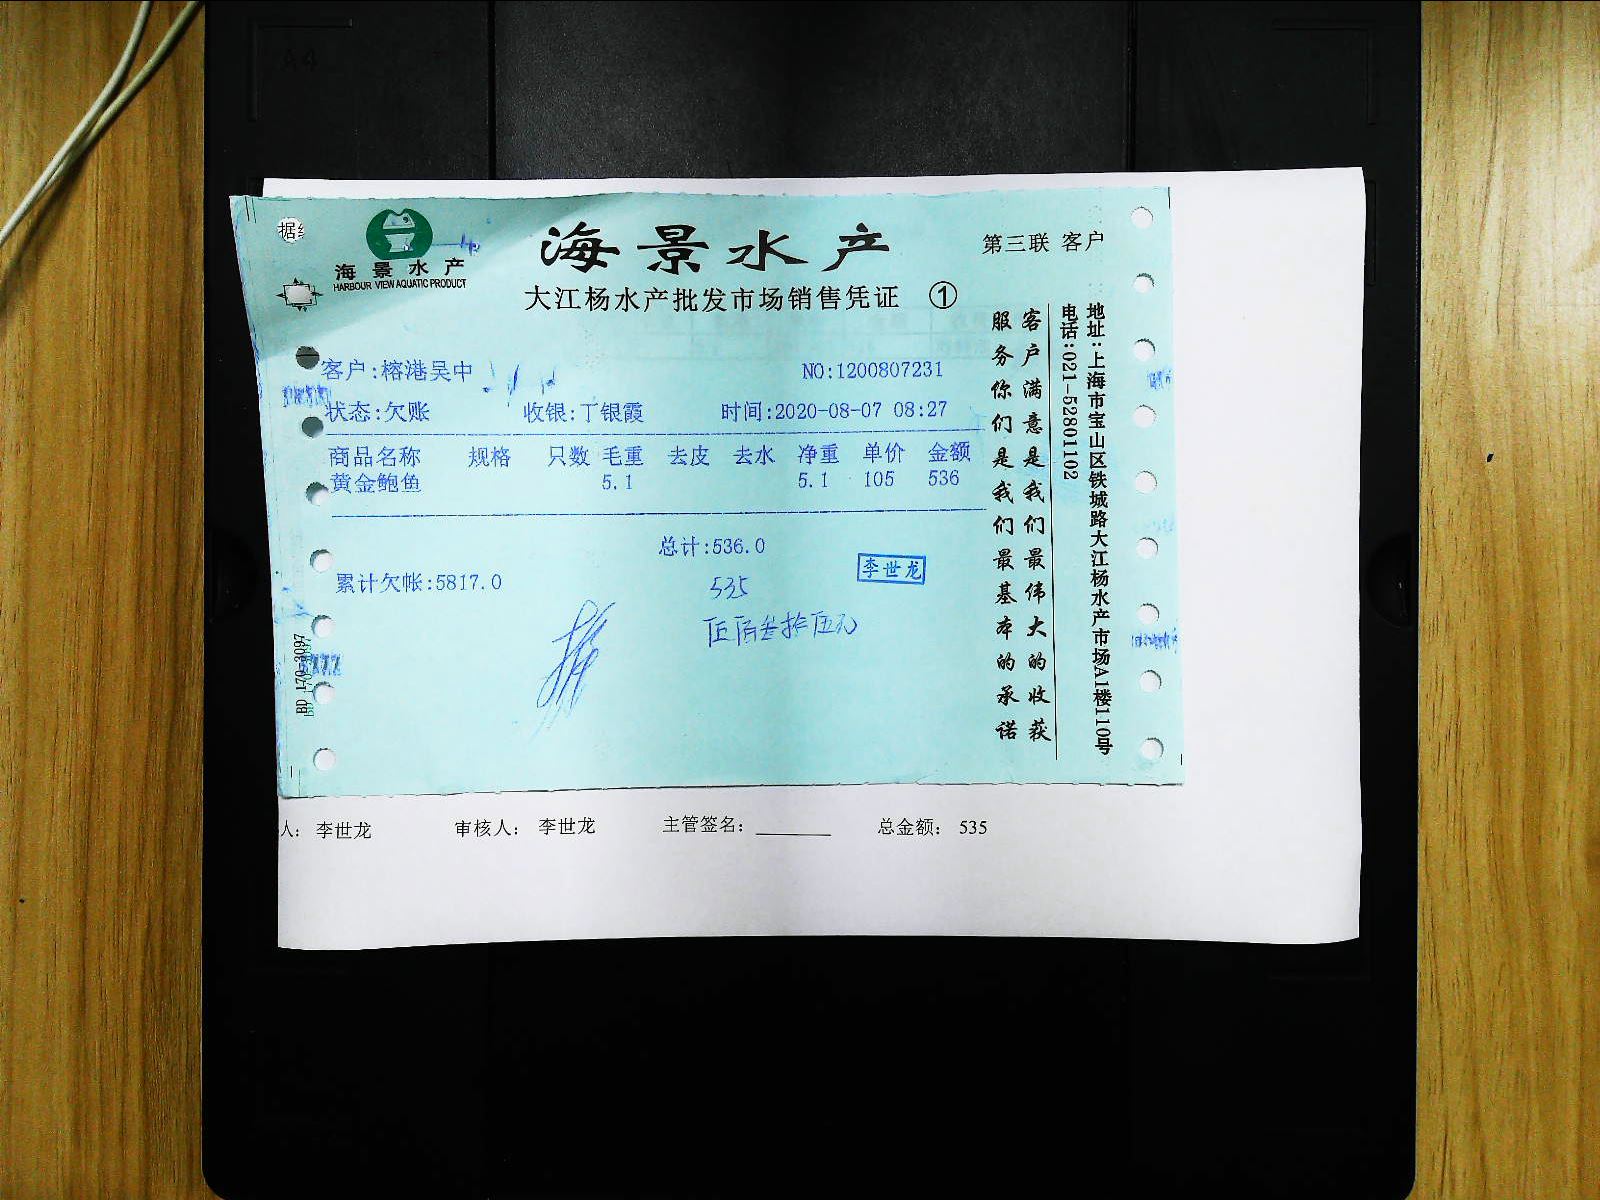 据
海景水产
HARBOUR VIEW AQUATIC PRODUCT
海景水产
第三联 客户
大江杨水产批发市场销售凭证 ①
客户:榕港吴中
NO:1200807231
状态:欠账 收银:丁银霞 时间:2020-08-07 08:27
商品名称 规格 只数 毛重 去皮 去水 净重 单价 金额
黄金鲍鱼 5.1 5.1 105 536
总计:536.0
累计欠帐:5817.0
535
伍佰叁拾伍元
李世龙
客户满意是我们最伟大的收获
服务你们是我们最基本的承诺
地址:上海市宝山区铁城路大江杨水产市场A1楼110号
电话:021-52801102
人: 李世龙 审核人: 李世龙 主管签名: 总金额: 535